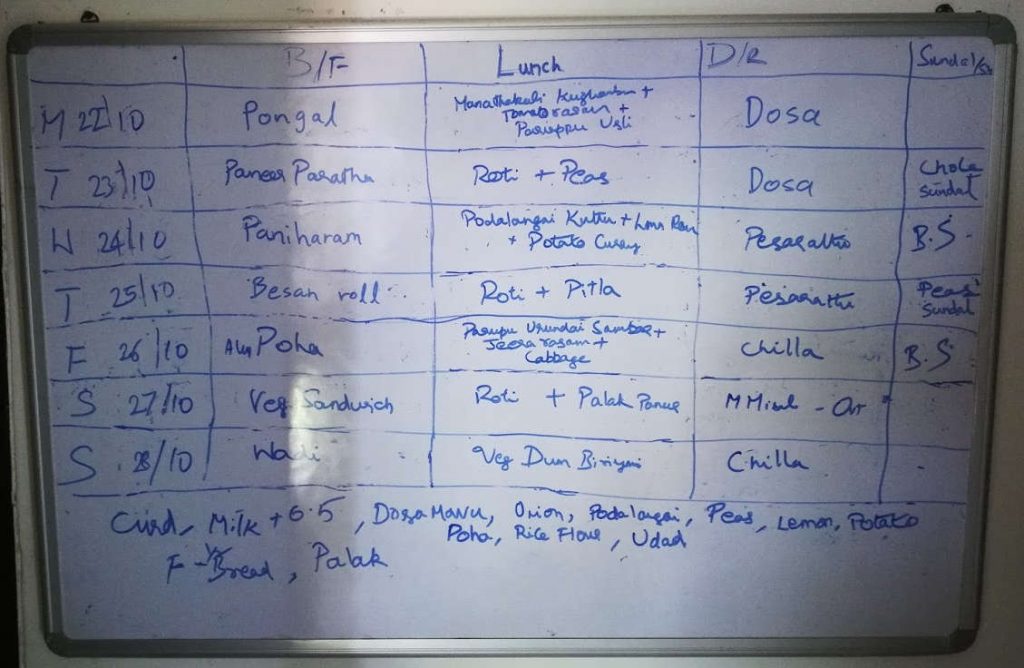 B/F Lunch D/R Sundal/
M 22/10 Pongal Manathakali Kuzhambu + Tomato rasam + Paruppu Usli Dosa
T 23/10 Paneer Paratha Roti + Peas Dosa Chole Sundal
W 24/10 Paniharam Podalangai Kuttu + Lemon + Potato Curry Pesarattu B.S.
T 25/10 Besan roll Roti + Pitla Pesarattu Peas Sundal
F 26/10 Alu Poha Parupu Urundai Sambar + Jeera rasam + Cabbage Chilla B.S
S 27/10 Veg Sandwich Roti + Palak Paneer M Misal -
S 28/10 Wadi Veg Dum Biriyani Chilla
Curd, Milk + 6.5, Dosa Mavu, Onion, Podalangai, Peas, Lemon, Potato
Poha, Rice Flour, Udad
F - Bread, Palak